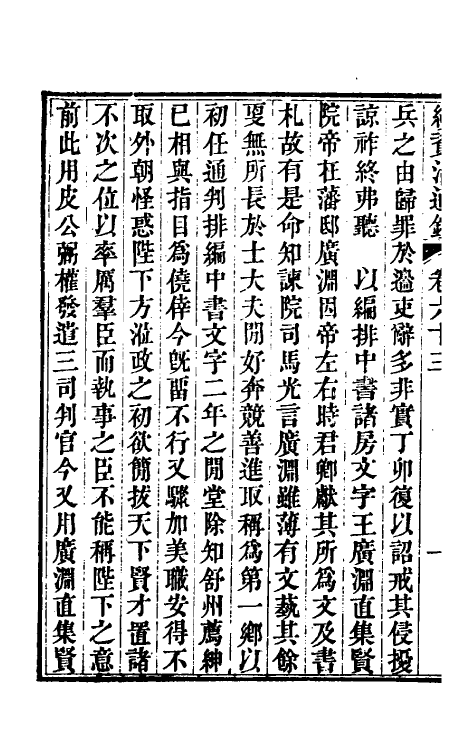 續資治通鑑 卷六十三 一
兵之由歸罪於邊吏辭多非實丁卯復以詔戒其侵擾
諒祚終弗聽 以編排中書諸房文字王廣淵直集賢
院帝在藩邸廣淵因帝左右時君卿獻其所為文及書
札故有是命知諫院司馬光言廣淵雖薄有文藝其餘
更無所長於士大夫閒好奔競善進取稱為第一鄉以
初任通判排編中書文字二年之閒堂除知舒州薦紳
已相與指目為僥倖今旣留不行又驟加美職安得不
取外朝怪惑陛下方涖政之初欲簡拔天下賢才置諸
不次之位以率厲羣臣而執事之臣不能稱陛下之意
前此用皮公弼權發遣三司判官今又用廣淵直集賢